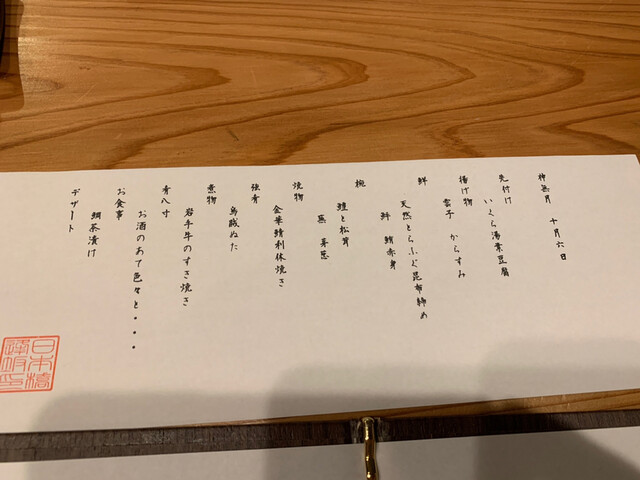 神無月 十月六日
先付け
いくら湯葉豆腐
揚げ物
雲子 からすみ
鮮
天然とらふぐ昆布締め
鮪赤身
椀
鱧と松茸
蕪 芽葱
焼物
金華鯖利休焼き
強肴
烏賊ぬた
煮物
岩手牛のすき焼き
肴八寸
お酒のあて色々と・・・
お食事
鯛茶漬け
デザート
日本橋